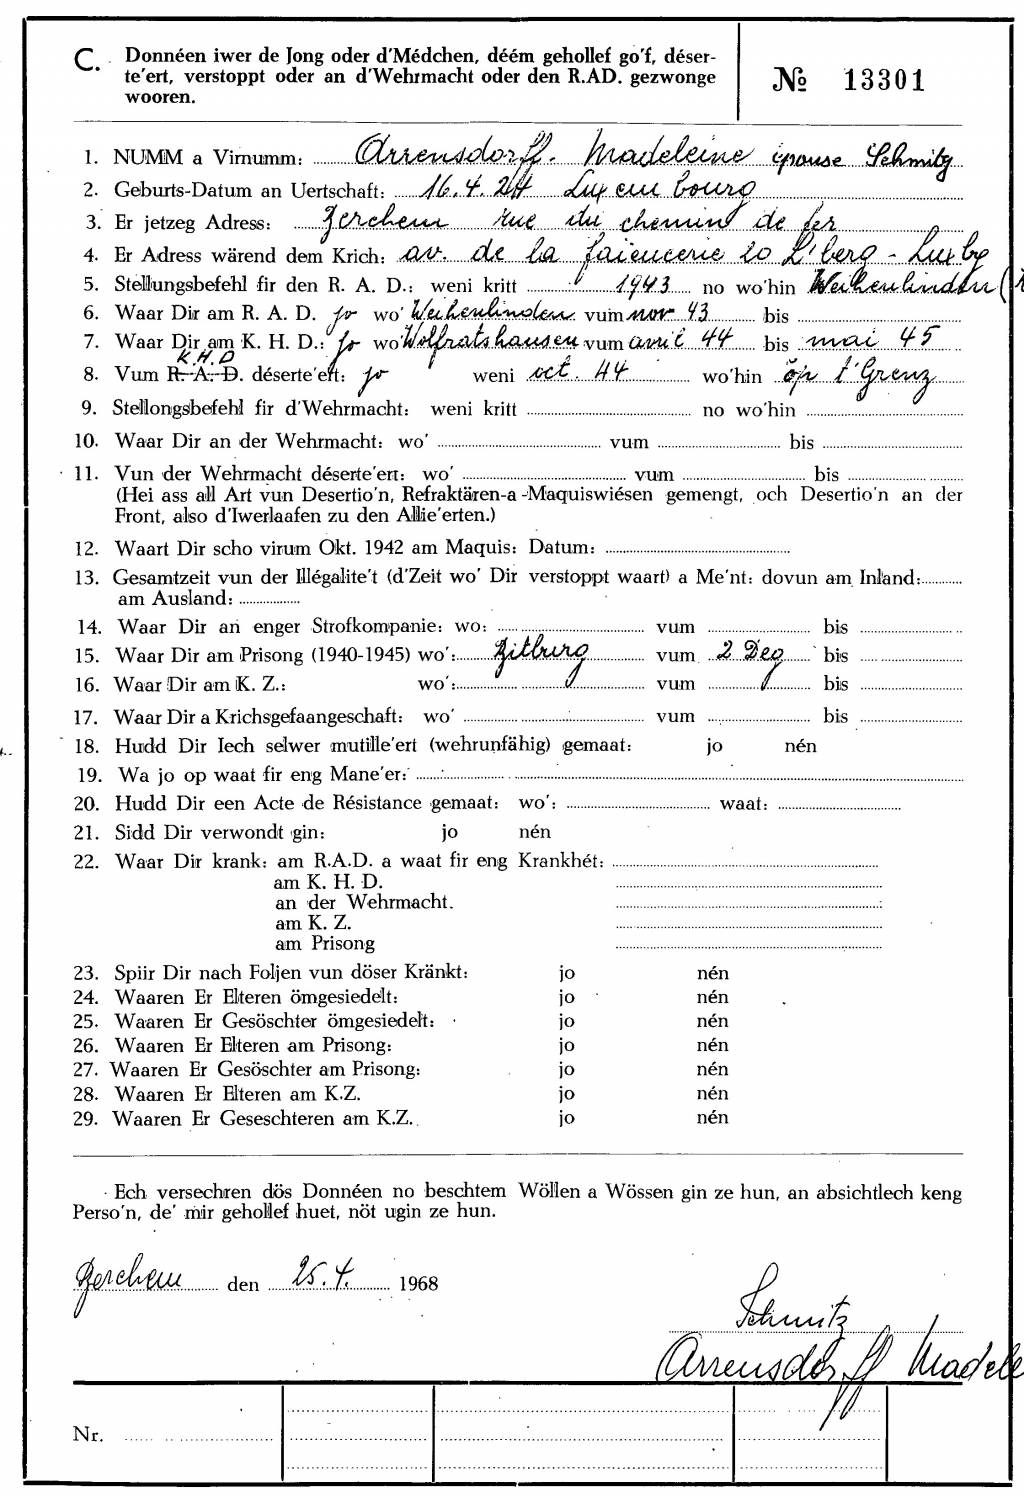 C. Donnéen iwer de Jong oder d'Médchen, déém gehollef go'f, déser-
te'ert, verstoppt oder an d'Wehrmacht oder den R.AD. gezwonge
wooren.
№ 13301
1. NUMM a Virnumm: Arrensdorff. Madeleine épouse Schmitz
2. Geburts-Datum an Uertschaft: 16.4.24 Luxembourg
3. Er jetzeg Adress: Berchem rue du chemin de fer
4. Er Adress wärend dem Krich: av. de la faiencerie 20 L'berg - Luxbg
5. Stellungsbefehl fir den R. A. D.: weni kritt 1943 no wo'hin Weihenlinden (
6. Waar Dir am R. A. D. jo wo' Weihenlinden vum nov 43 bis
7. Waar Dir am K. H. D.: jo wo' Wolfratshausen vum avril 44 bis mai 45
K.H.D
8. Vum R. A. D. déserte'ert: jo weni oct. 44 wo'hin op t'Grenz
9. Stellongsbefehl fir d'Wehrmacht: weni kritt no wo'hin
10. Waar Dir an der Wehrmacht: wo' vum bis
11. Vun der Wehrmacht déserte'ert: wo' vum bis
(Hei ass all Art vun Desertio'n, Refraktären-a-Maquiswiésen gemengt, och Desertio'n an der
Front, also d'Iwerlaafen zu den Allie'erten.)
12. Waart Dir scho virum Okt. 1942 am Maquis: Datum:
13. Gesamtzeit vun der Illégalite't (d'Zeit wo' Dir verstoppt waart) a Me'nt: dovun am Inland:
am Ausland:
14. Waar Dir an enger Strofkompanie: wo: vum bis
15. Waar Dir am Prisong (1940-1945) wo': Bitburg vum 2 Deg bis
16. Waar Dir am K. Z.: wo': vum bis
17. Waar Dir a Krichsgefaangeschaft: wo' vum bis
18. Hudd Dir Iech selwer mutille'ert (wehrunfähig) gemaat: jo nén
19. Wa jo op waat fir eng Mane'er:
20. Hudd Dir een Acte de Résistance gemaat: wo': waat:
21. Sidd Dir verwondt gin: jo nén
22. Waar Dir krank: am R.A.D. a waat fir eng Krankhét:
am K. H. D.
an der Wehrmacht.
am K. Z.
am Prisong
23. Spiir Dir nach Foljen vun döser Kränkt: jo nén
24. Waaren Er Elteren ömgesiedelt: jo nén
25. Waaren Er Gesöschter ömgesiedelt: jo nén
26. Waaren Er Elteren am Prisong: jo nén
27. Waaren Er Gesöschter am Prisong: jo nén
28. Waaren Er Elteren am K.Z. jo nén
29. Waaren Er Geseschteren am K.Z. jo nén
Ech versechren dös Donnéen no beschtem Wöllen a Wössen gin ze hun, an absichtlech keng
Perso'n, de' mir gehollef huet, nöt ugin ze hun.
Berchem den 25.4. 1968
Schmitz
Arrensdorff Madele
Nr.